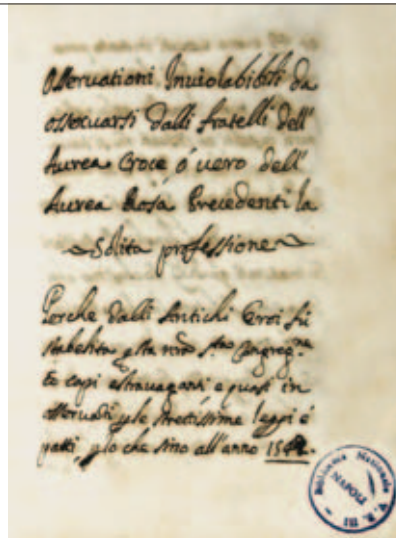 Osservationi Inviolabibili da
osservarsi dalli fratelli dell'
Aurea Croce ó vero dell'
Aurea Rosa Precedenti la
Solita professione
Perche dalli Antichi Eroi fù
stabelita nra
capi estravaganti e quasi in
osservati strettissime leggi é
patti, che sino all'anno 1542.
Biblioteca Nazionale
NAPOLI
V. E. III